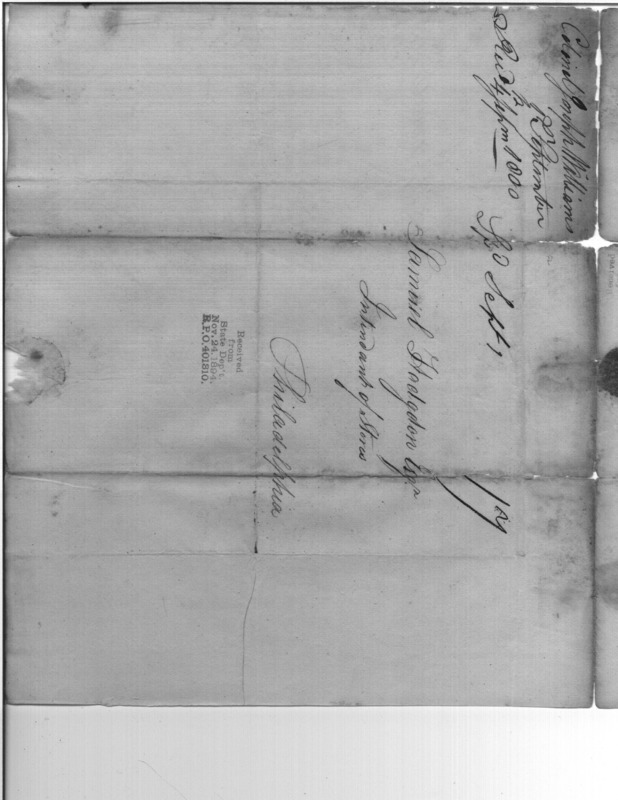 Colonel Joseph Williams
2 September
Recd 4 1800
Sept 1
19
Samuel Hodgdon Esqr
Intendant of Stores
Philadelphia
Received
from
State Dep't.
Nov. 24, 1894.
R.P.O. 401810.